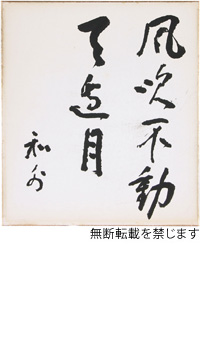 風吹不動
天辺月
和外
無断転載を禁じます